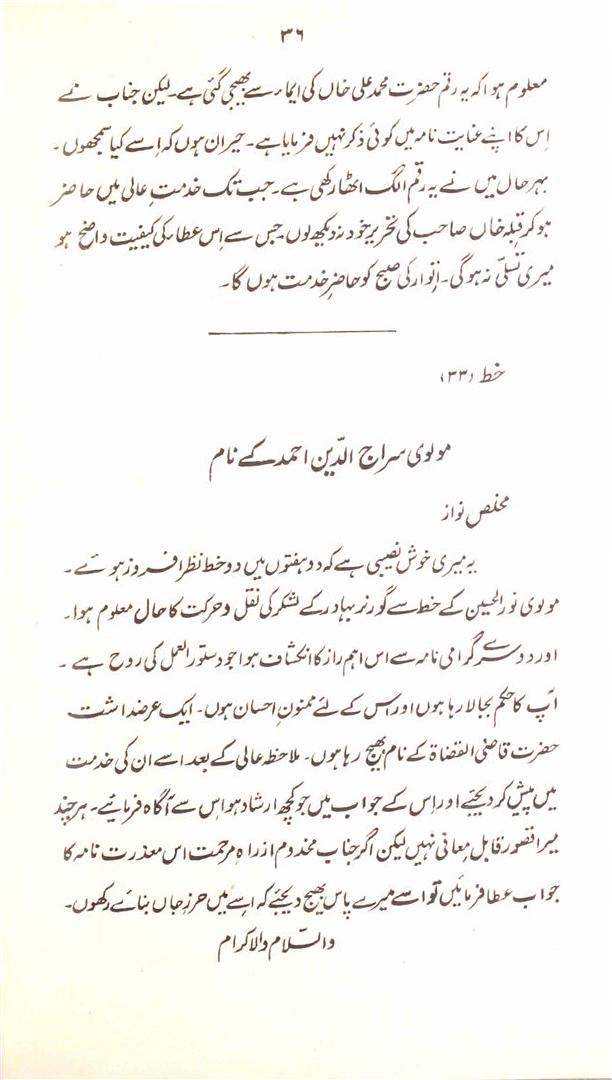 ۳۶
معلوم ہوا کہ یہ رقم حضرت محمد علی خاں کی ایماء سے بھیجی گئی ہے۔ لیکن جناب نے
اِس کا اپنے عنایت نامہ میں کوئی ذکر نہیں فرمایا ہے۔ حیران ہوں کہ اِسے کیا سمجھوں۔
بہر حال میں نے یہ رقم الگ اٹھا رکھی ہے۔ جب تک خدمتِ عالی میں حاضر
ہو کر قبلہ خاں صاحب کی تحریر خود نہ دیکھ لوں جس سے اِس عطاء کی کیفیت واضح ہو
میری تسلّی نہ ہو گی۔ اتوار کی صبح کو حاضرِ خدمت ہوں گا۔
خط (۳۳)
مولوی سراج الدّین احمد کے نام
مخلص نواز
یہ میری خوش نصیبی ہے کہ دو ہفتوں میں دو خط نظر افروز ہوئے۔
مولوی نور الحسین کے خط سے گورنر بہادر کے لشکر کی نقل و حرکت کا حال معلوم ہوا۔
اور دوسرے گرامی نامہ سے اس اہم راز کا انکشاف ہوا جو دستور العمل کی روح ہے۔
آپ کا حکم بجا لا رہا ہوں اور اس کے لئے ممنونِ احسان ہوں۔ ایک عرضداشت
حضرت قاضی القضاۃ کے نام بھیج رہا ہوں۔ ملاحظہ عالی کے بعد اسے ان کی خدمت
میں پیش کر دیجئے اور اِس کے جواب میں جو کچھ ارشاد ہو اس سے آگاہ فرمائیے۔ ہر چند
میرا قصور قابلِ معانی نہیں لیکن اگر جناب مخدوم از راہِ مرحمت اس معذرت نامہ کا
جواب عطا فرمائیں تو اسے میرے پاس بھیج دیجئے کہ اِسے میں حرزِ جاں بنائے رکھوں۔
والسّلام والاکرام